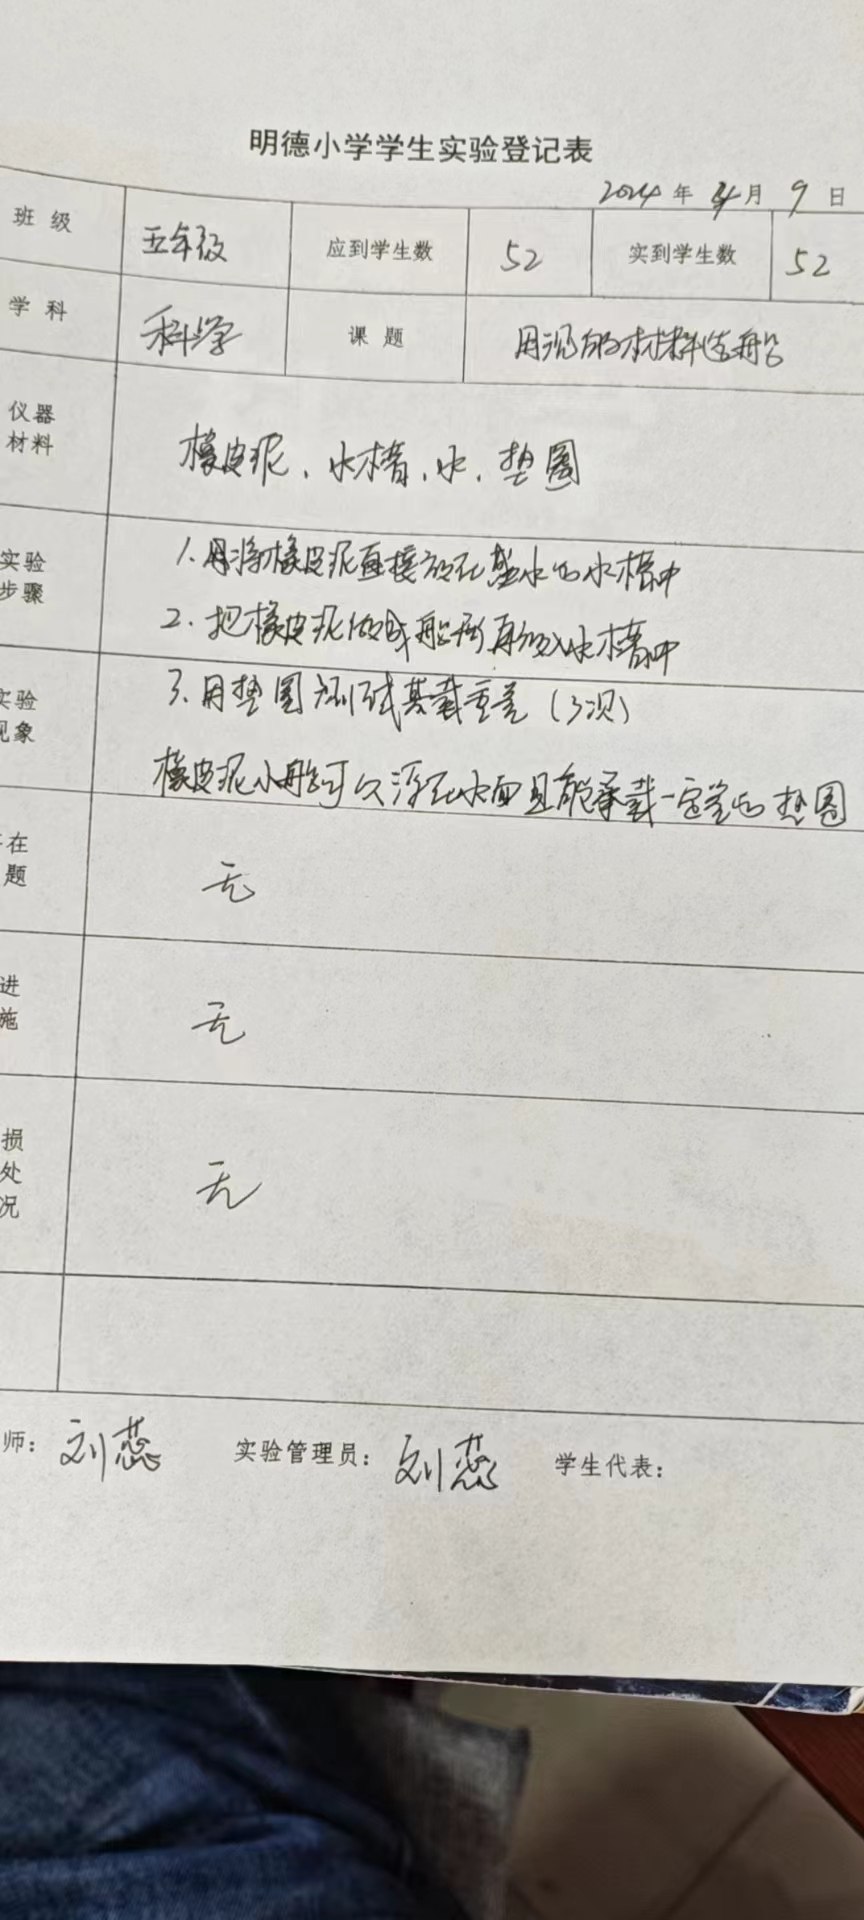 明德小学学生实验登记表
2024年 4月 9日
班级 五年级 应到学生数 52 实到学生数 52
学科 科学 课题 用沉的材料造船
仪器
材料
橡皮泥、水槽、水、垫圈
实验
步骤
1.将橡皮泥直接放在盛水的水槽中
2.把橡皮泥做成船形再放入水槽中
实验
现象
3.用垫圈测试其载重量(3次)
橡皮泥小船可以浮在水面且能承载一定量的垫圈
在
题
无
进
施
无
损
处
况
无
师: 刘蕊 实验管理员: 刘蕊 学生代表: